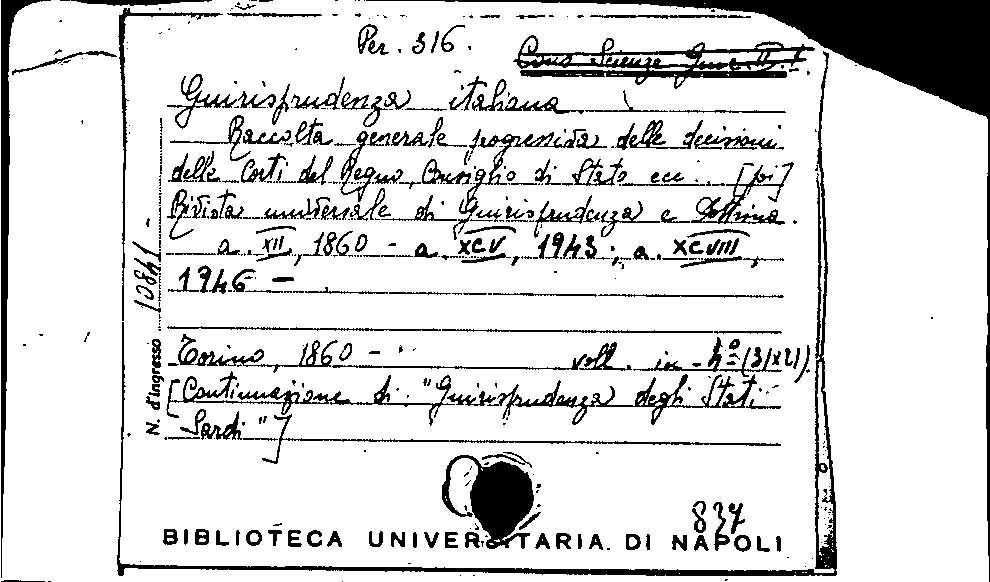 Per. 316.
Giurisprudenza italiana
Raccolta generale progressiva delle decisioni
delle Corti del Regno, Consiglio di Stato ecc.. [poi]
Rivista universale di Giurisprudenza e Dottrina.
a. XII, 1860 - a. XCV, 1943; a. XCVIII,
1946 - .
N. d'ingresso 10841
Torino, 1860 - voll. in - 4º (31x21).
[Continuazione di: "Giurisprudenza degli Stati
Sardi"]
837
BIBLIOTECA UNIVERSITARIA. DI NAPOLI